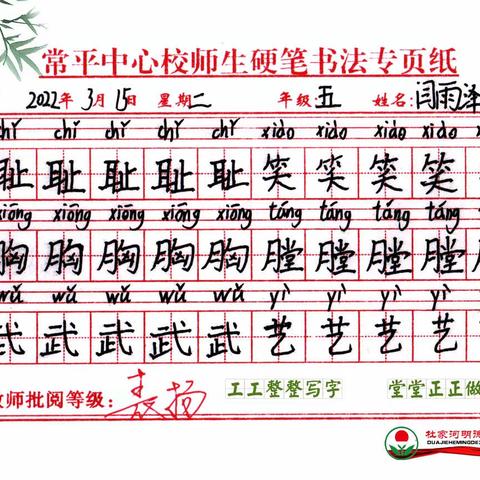 常平中心校师生硬笔书法专页纸
2022年 3月15日 星期二 年级 五 姓名: 闫雨泽
chǐ chǐ chǐ chǐ chǐ xiào xiào xiào xiào
耻 耻 耻 耻 耻 笑 笑 笑 笑
xiōng xiōng xiōng xiōng xiōng táng táng táng táng
胸 胸 胸 胸 胸 膛 膛 膛 膛
wǔ wǔ wǔ wǔ wǔ yì yì yì yì
武 武 武 武 武 艺 艺 艺 艺
师批阅等级: 工工整整写字 堂堂正正做
杜家河明
DUJIAHEMINGDE